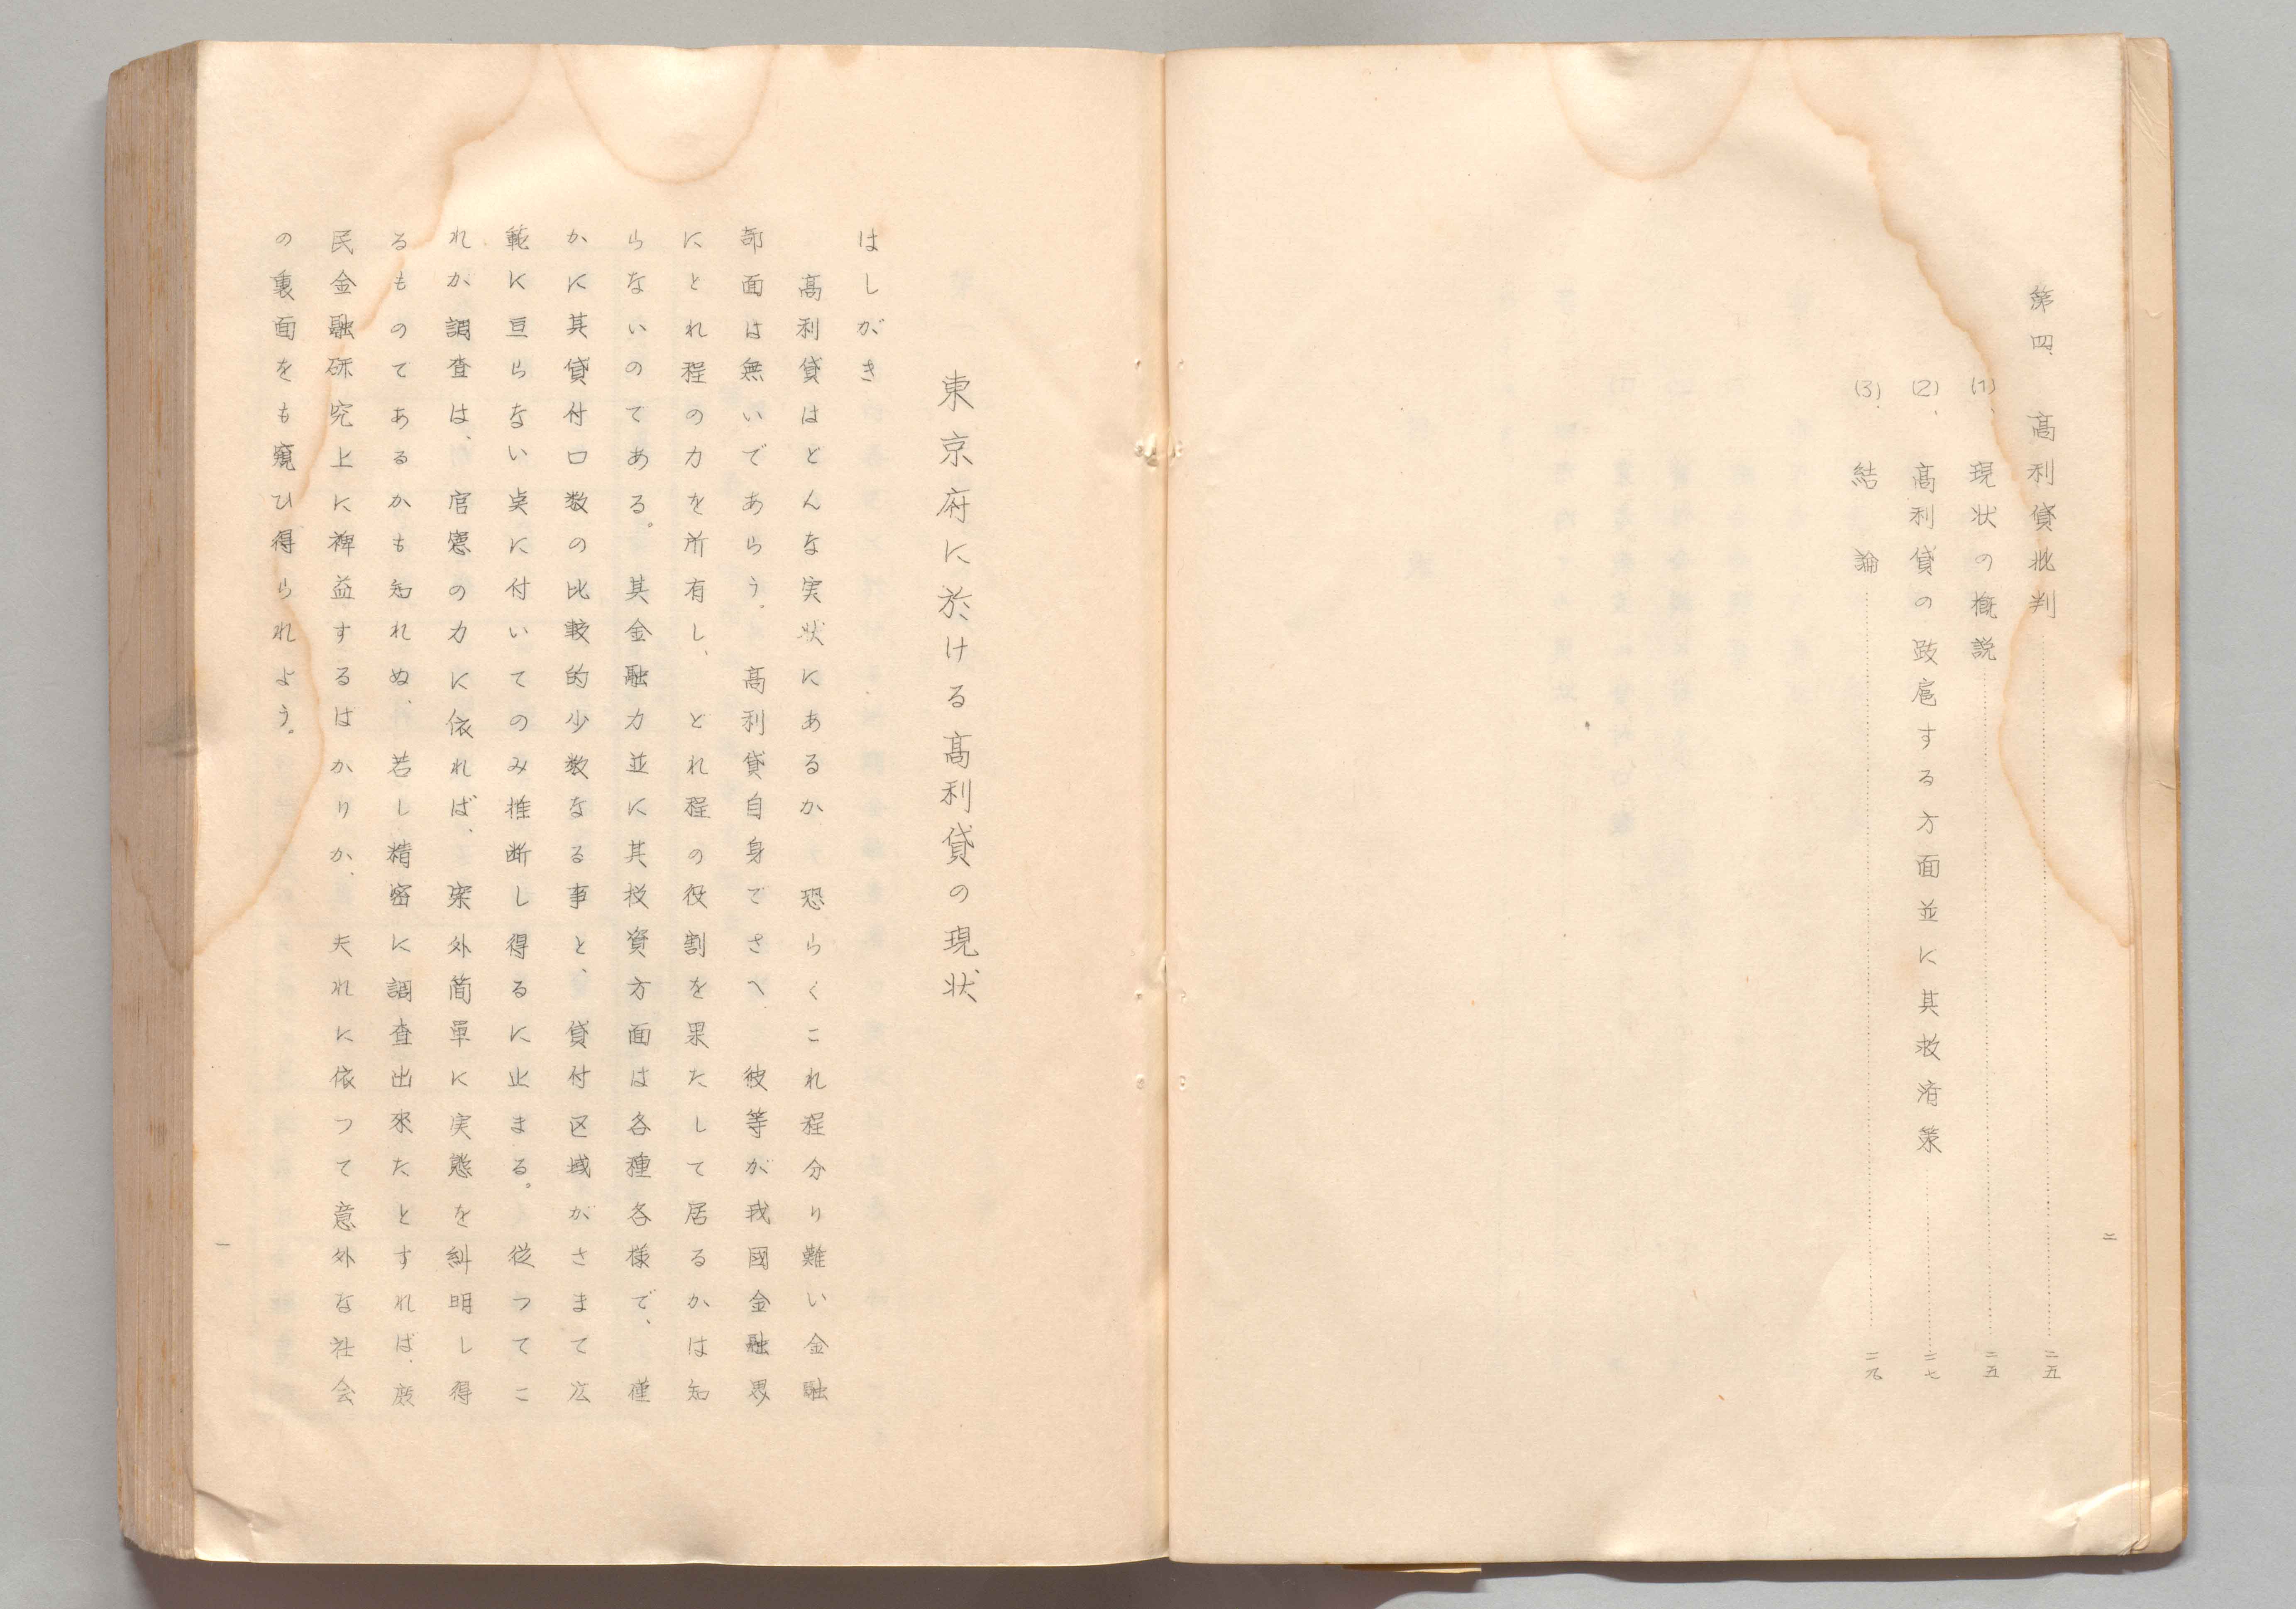 第四、高利貸批判……二五
(1)、現状の概説……二五
(2)、高利貸の跋扈する方面並に其救済策……二七
(3)、結論……二九
二
東京府に於ける高利貸の現状
はしがき
高利貸はどんな実状にあるか 恐らくこれ程分り難い金融
部面は無いであらう。高利貸自身でさへ、彼等が我國金融界
にどれ程の力を所有し、どれ程の役割を果たして居るかは知
らないのてある。其金融力並に其投資方面は各種各様で、僅
かに其貸付口数の比較的少数なる事と、貸付区域がさまて広
範に亘らない点に付いてのみ推断し得るに止まる。従つてこ
れか調査は、官憲の力に依れば、案外简單に実態を糾明し得
るものてあるかも知れぬ、若し精密に調査出來たとすれば、庶
民金融研究上に裨益するばかりか、夫れに依つて意外な社会
の裏面をも窺ひ得られよう。
一